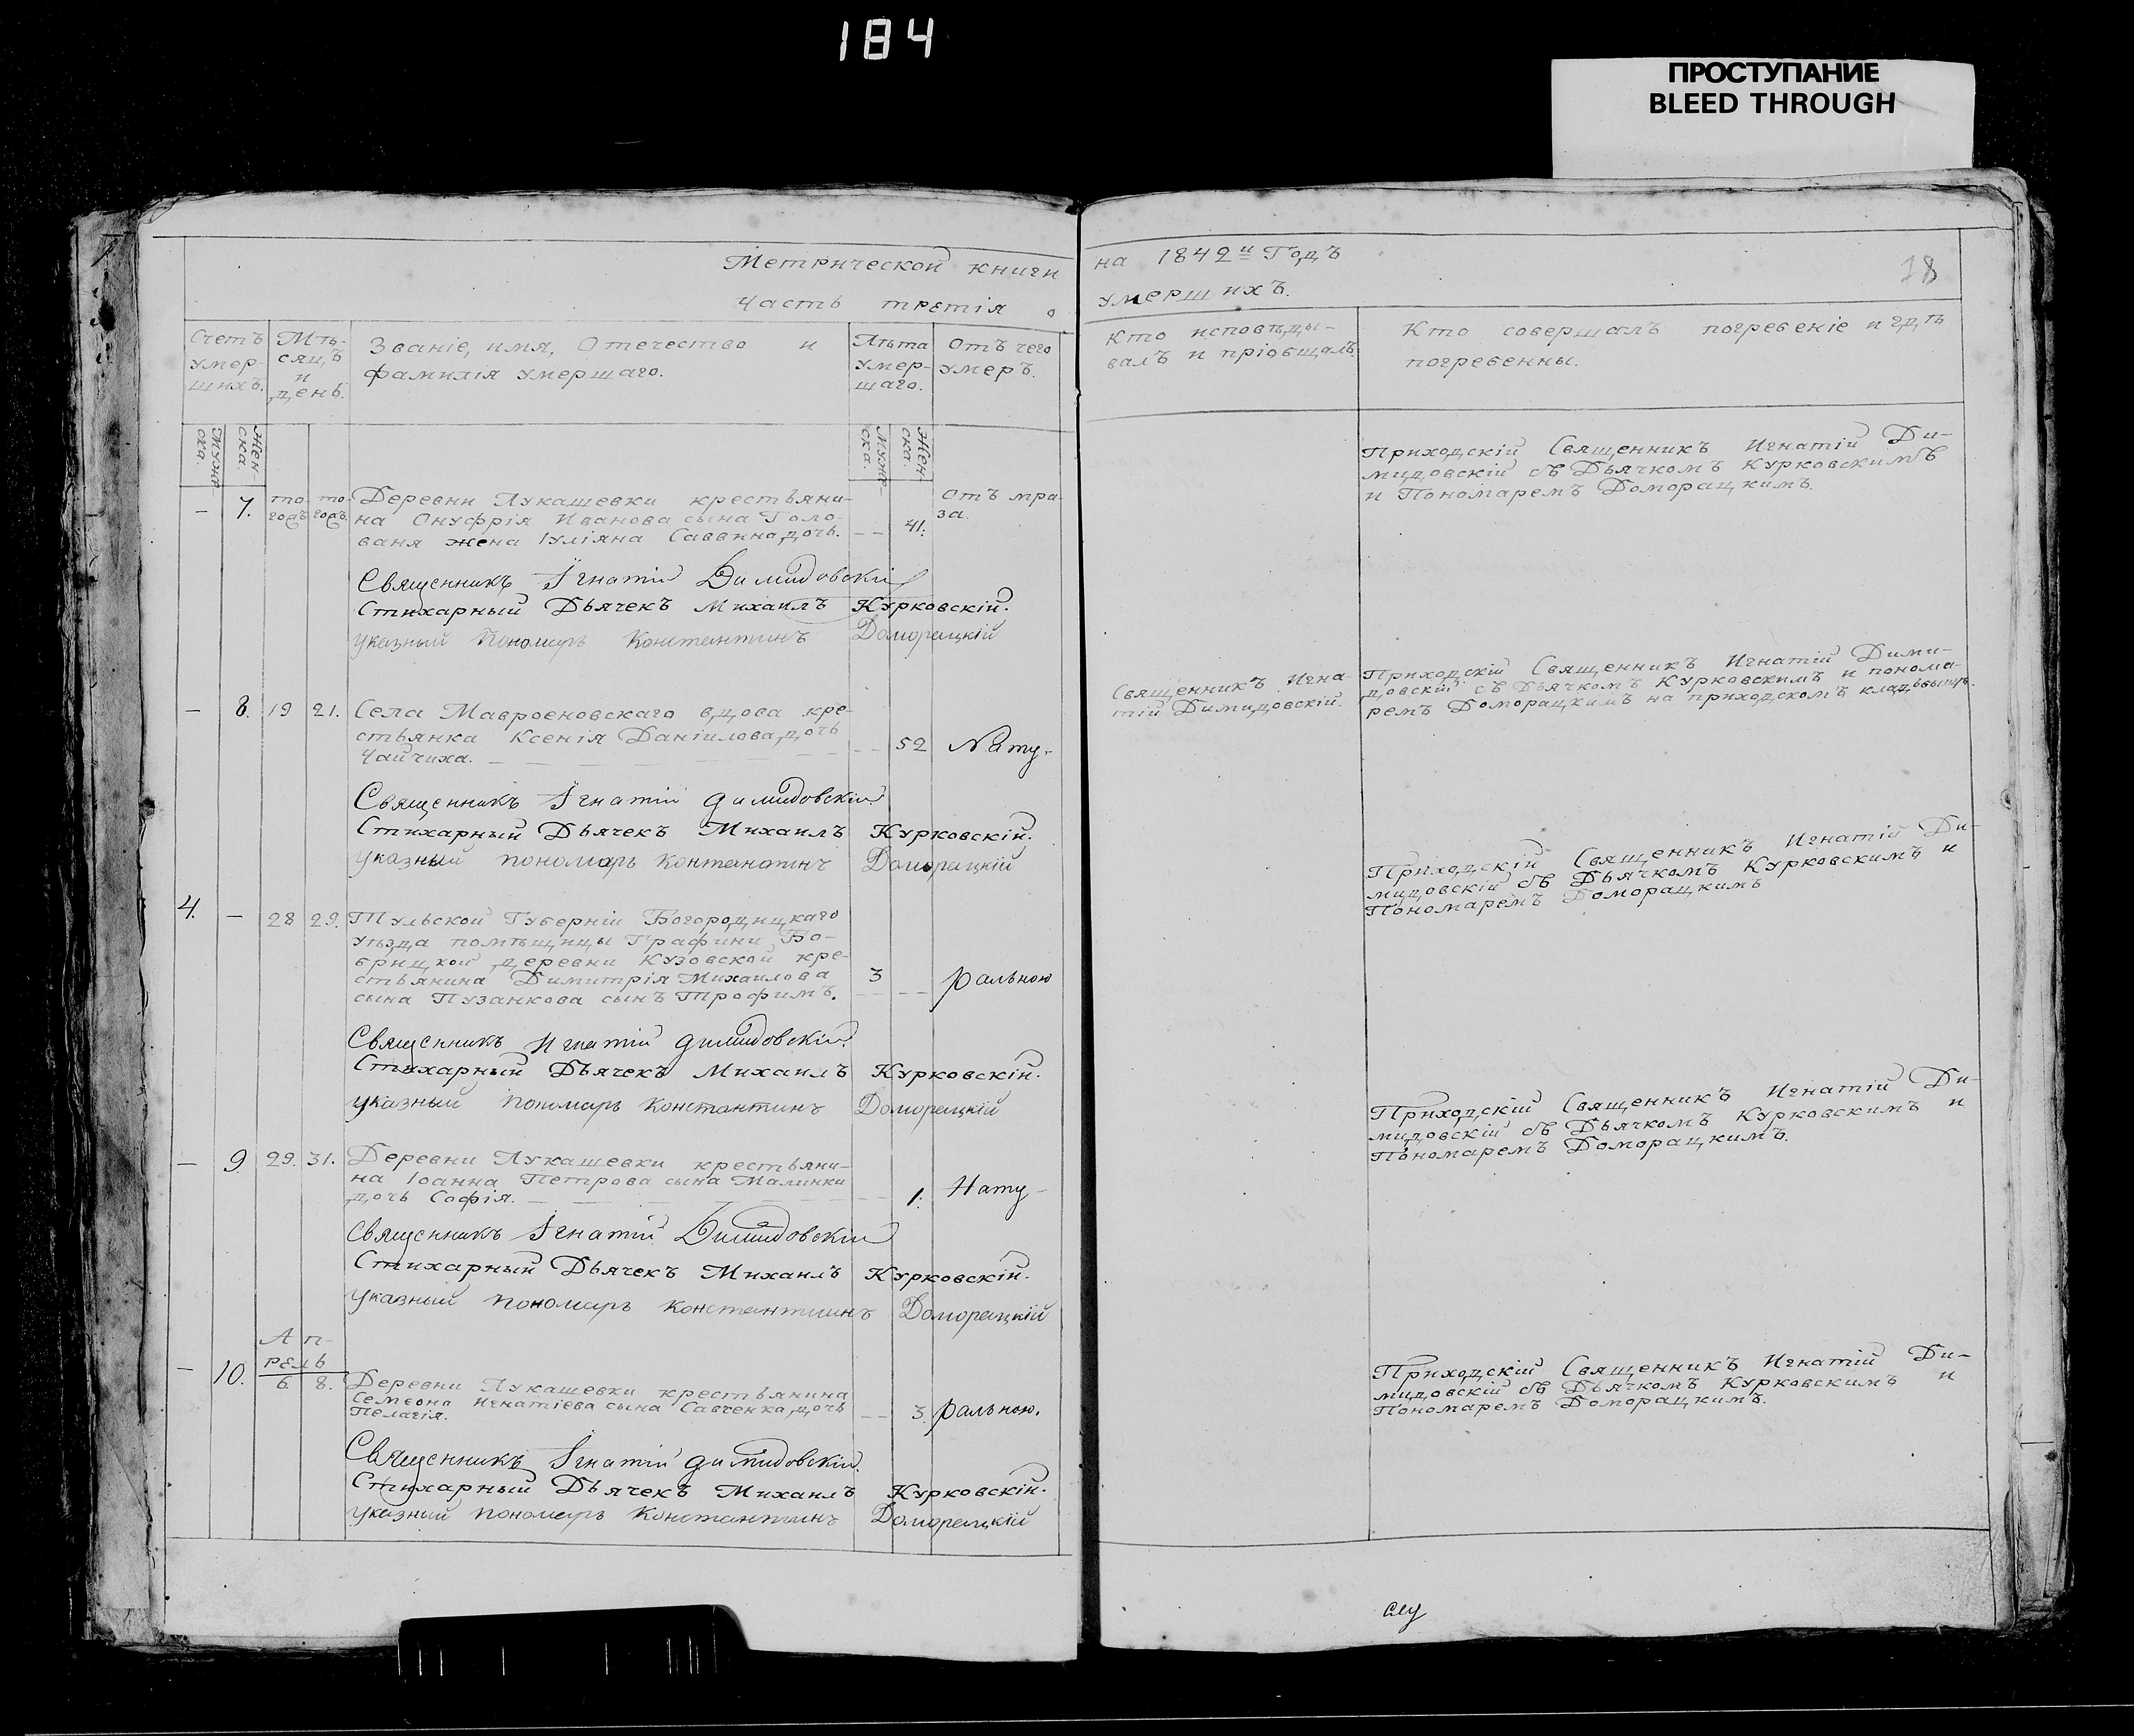 184
ПРОСТУПАНИЕ
BLEED THROUGH
Метрической книги
часть третія
на 1842й Годъ
умершихъ.
18
Счетъ умер-шихъ.
Мѣ-сяцъ и день.
Званіе, имя, Отечество и
фамилія умершаго.
Лѣта умер-шаго.
Отъ чего умеръ.
Кто исповѣды-
валъ и пріобщалъ
Кто совершалъ погребеніе и гдѣ
погребенны.
Мужес-ка.
Жен-ска.
Мужес-ка.
Жен-ска.
— 7. то-гожъ то-гожъ.
Деревни Лукашевки крестьяни-
на Онуфрія Иванова сына Голо-
ваня жена Іуліяна Саввина дочь. 41.
Отъ мра-
за.
Приходскій Священникъ Игнатій Ди-
мидовскій съ Дьячкомъ Курковскимъ
и Пономаремъ Доморацкимъ.
Священникъ Игнатій Димидовскій
Стихарный Дьячекъ Михаилъ Курковскій.
Указный Пономарь Константинъ Доморацкій
— 8. 19 21.
Села Мавроеновскаго вдова кре-
стьянка Ксенія Даніилова дочь
Чайчиха. 52 Нату-
Священникъ Игна-
тій Димидовскій.
Приходскій Священникъ Игнатій Дими-
довскій съ Дьячкомъ Курковскимъ и понома-
ремъ Доморацкимъ на приходскомъ кладбыщѣ.
Священникъ Игнатій Димидовскій
Стихарный Дьячекъ Михаилъ Курковскій.
Указный пономарь Контанотинъ Доморацкій
4. — 28 29.
Тульской Губерніи Богородицкаго
уѣзда помѣщицы Графини Бо-
брицкой деревни Кузовской кре-
стьянина Димитрія Михаилова
сына Пузанкова сынъ Трофимъ. 3 ральною
Приходскій Священникъ Игнатій Ди-
мидовскій съ Дьячкомъ Курковскимъ и
Пономаремъ Доморацкимъ
Священникъ Игнатій Димидовскій.
Стихарный Дьячекъ Михаилъ Курковскій.
Указный пономарь Константинъ Доморацкій
— 9 29. 31.
Деревни Лукашевки крестьяни-
на Іоанна Петрова сына Малинки
дочь Софія. 1. Нату-
Приходскій Священникъ Игнатій Ди-
мидовскій съ Дьячкомъ Курковскимъ и
Пономаремъ Доморацкимъ.
Священникъ Игнатій Димидовскій
Стихарный Дьячекъ Михаилъ Курковскій.
Указный пономарь Константинъ Доморацкій
Ап-
рель
— 10. 6. 8.
Деревни Лукашевки крестьянина
Семеона Игнатіева сына Савченка дочь
Пелагія. 3. ральною.
Приходскій Священникъ Игнатій Ди-
мидовскій съ Дьячкомъ Курковскимъ и
Пономаремъ Доморацкимъ.
Священникъ Игнатій Димидовскій.
Стихарный Дьячекъ Михаилъ Курковскій.
Указный пономарь Константинъ Доморацкій